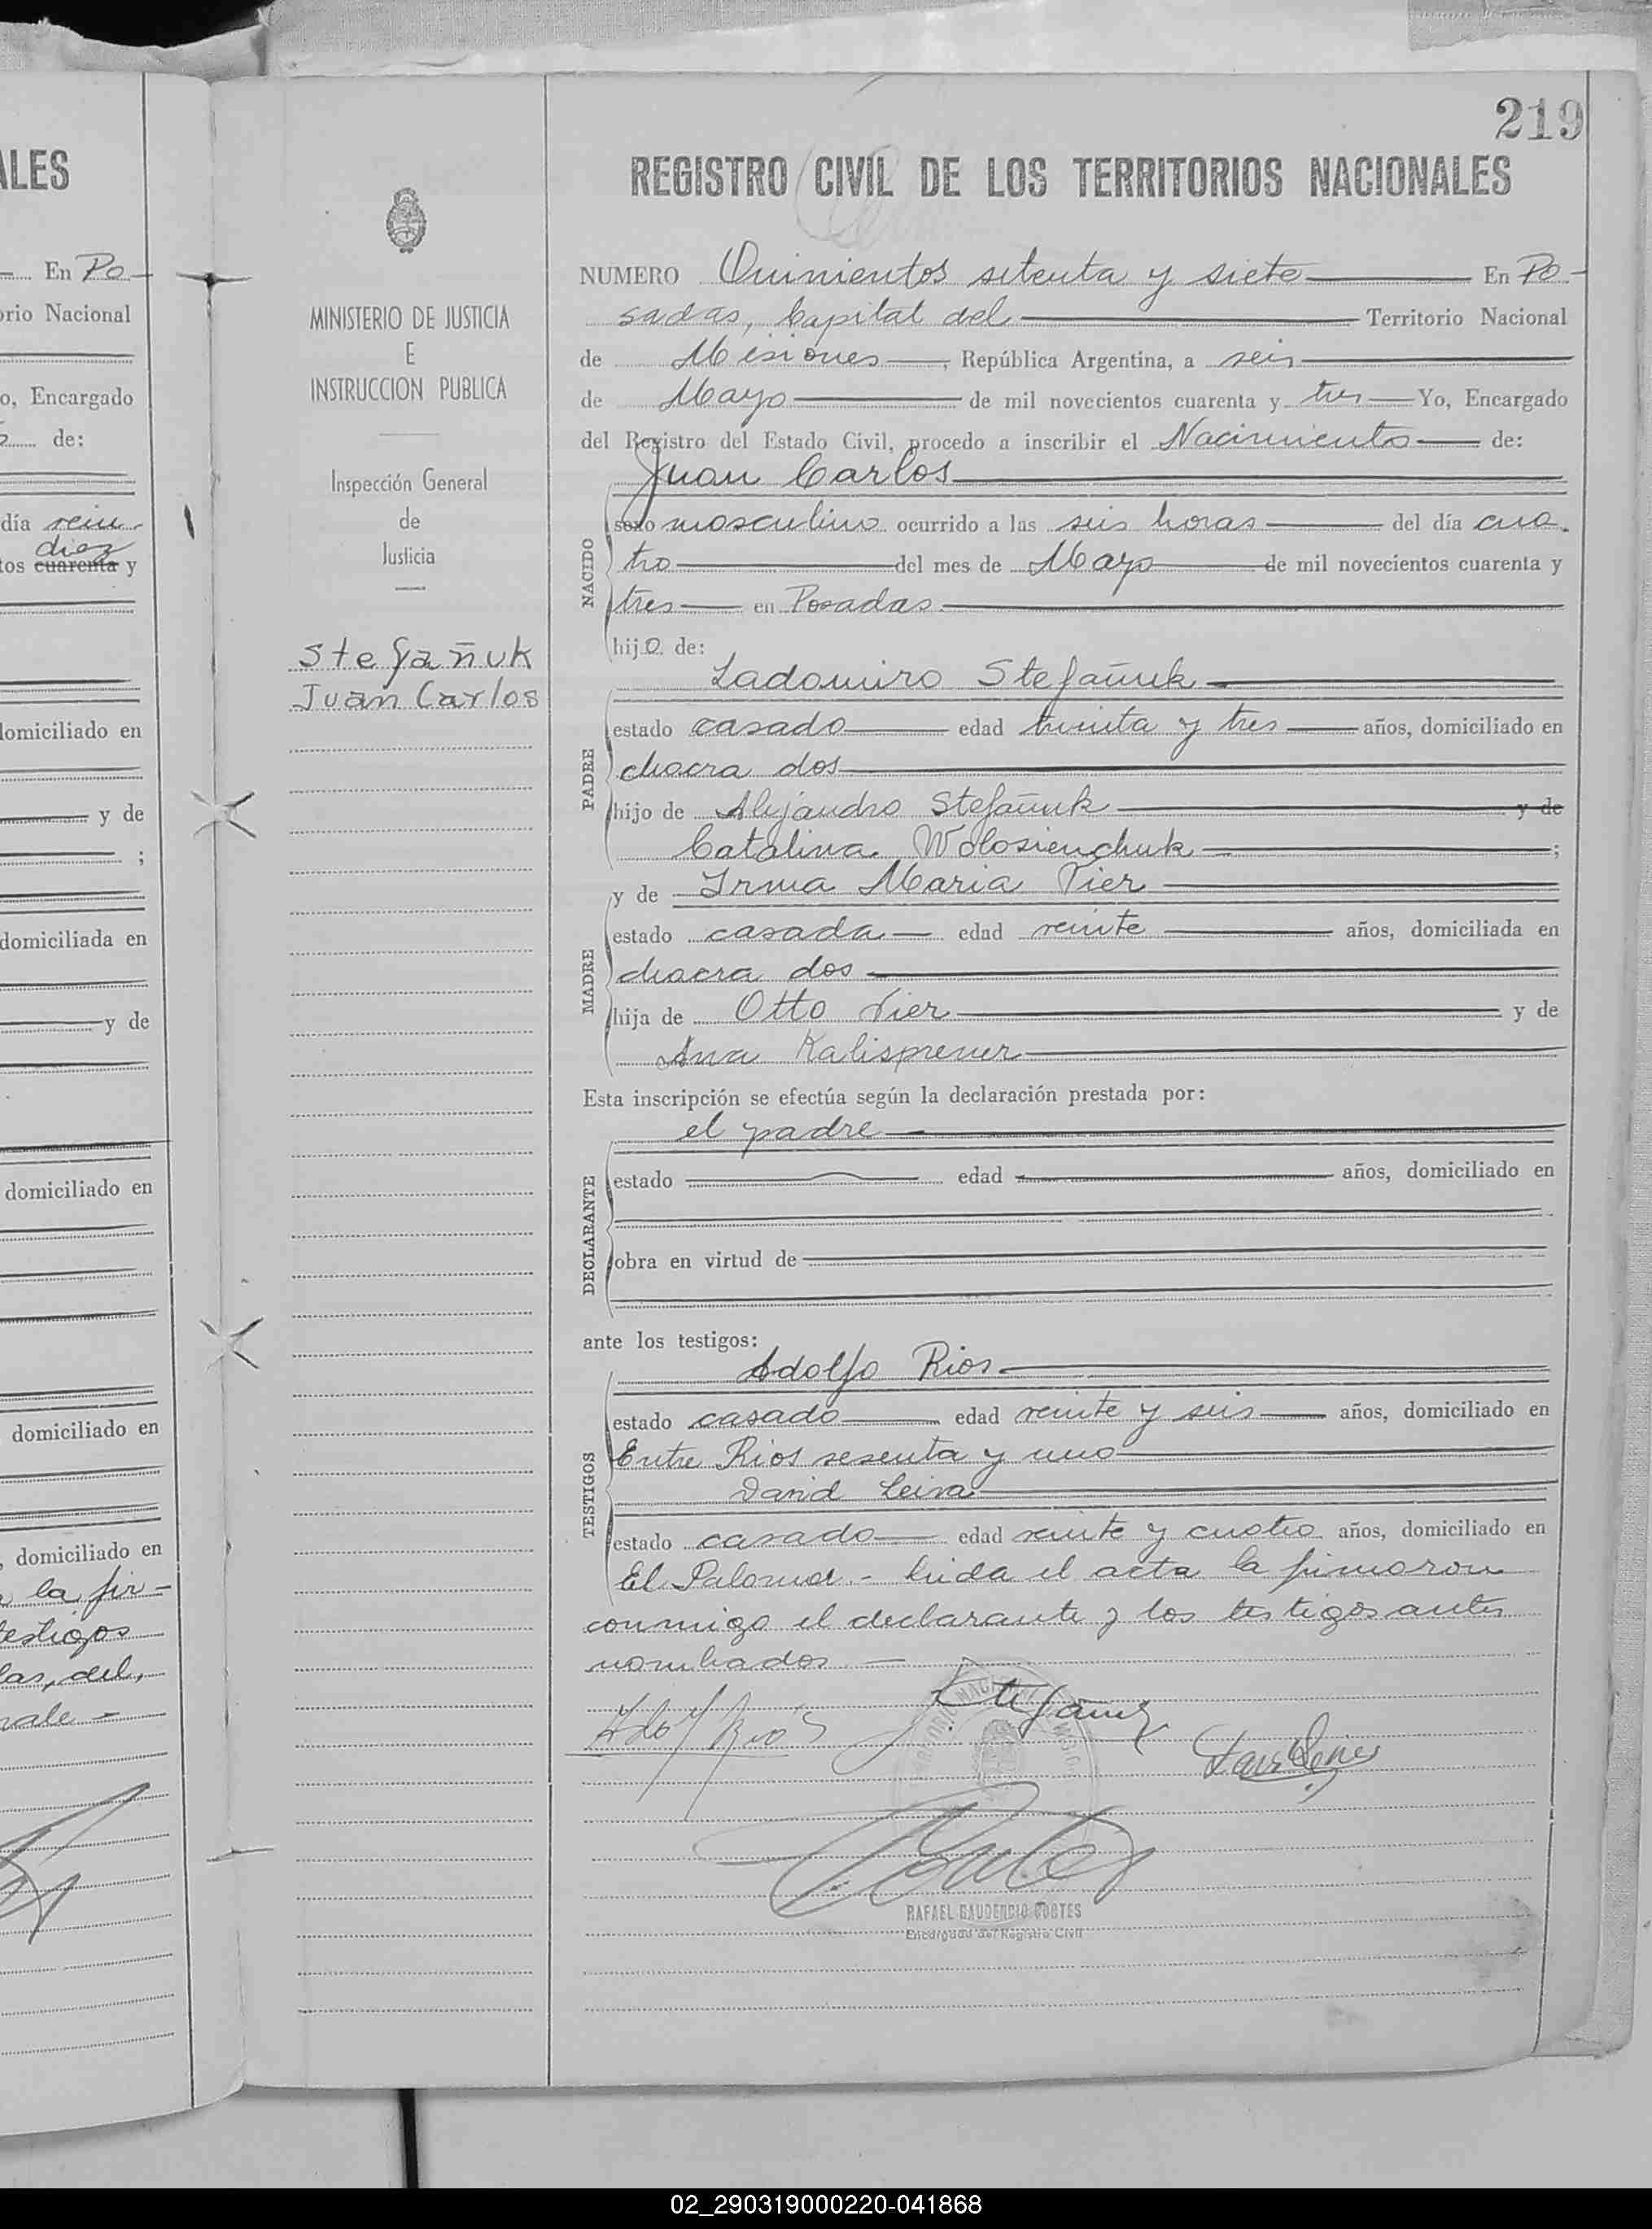 ALES
En Po-
orio Nacional
o, Encargado
de:
día vein-
diez
tos cuarenta y
domiciliado en
y de
;
domiciliada en
y de
domiciliado en
domiciliado en
, domiciliado en
la fir-
testigos
las, del,
vale -
219
REGISTRO CIVIL DE LOS TERRITORIOS NACIONALES
MINISTERIO DE JUSTICIA
E
INSTRUCCION PUBLICA
Inspección General
de
Justicia
Stefañuk
Juan Carlos
NUMERO Quinientos setenta y siete En Po-
sadas, Capital del Territorio Nacional
de Misiones, República Argentina, a seis
de Mayo de mil novecientos cuarenta y tres Yo, Encargado
del Registro del Estado Civil, procedo a inscribir el Nacimiento de:
Juan Carlos
NACIDO
sexo masculino ocurrido a las seis horas del día cua-
tro del mes de Mayo de mil novecientos cuarenta y
tres en Posadas
hijo de:
Ladomiro Stefañuk
PADRE
estado casado edad treinta y tres años, domiciliado en
chacra dos
hijo de Alejandro Stefañuk y de
Catalina Wolosienchuk ;
y de Irma Maria Vier
MADRE
estado casada edad veinte años, domiciliada en
chacra dos
hija de Otto Vier y de
Ana Kalisprener
Esta inscripción se efectúa según la declaración prestada por:
el padre
DECLARANTE
estado edad años, domiciliado en
obra en virtud de
ante los testigos:
Adolfo Rios
TESTIGOS
estado casado edad veinte y seis años, domiciliado en
Entre Rios sesenta y uno
David Leiva
estado casado edad veinte y cuatro años, domiciliado en
El Palomar.- Leida el acta la firmaron
conmigo el declarante y los testigos antes
nombrados.-
RAFAEL GAUDENCIO CORTES
Encargado del Registro Civil
02_290319000220-041868